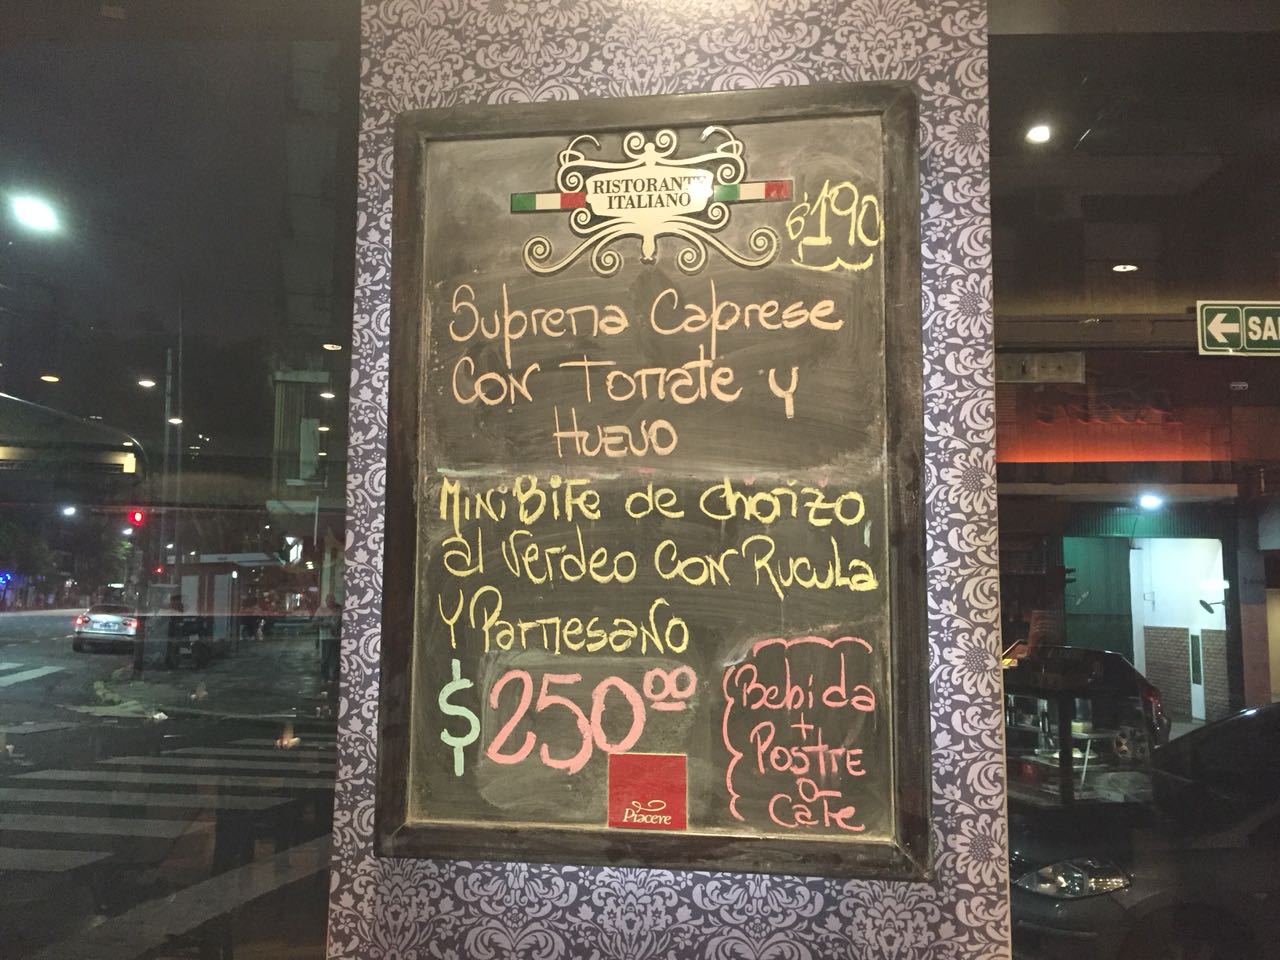 RISTORANTE
ITALIANO
$190
Suprema Caprese
Con Tomate y
Huevo
Mini Bife de Chorizo
al Verdeo Con Rucula
Y Parmesano
$250.00
Bebida
+
Postre
o
Cafe
Piacere
SAL